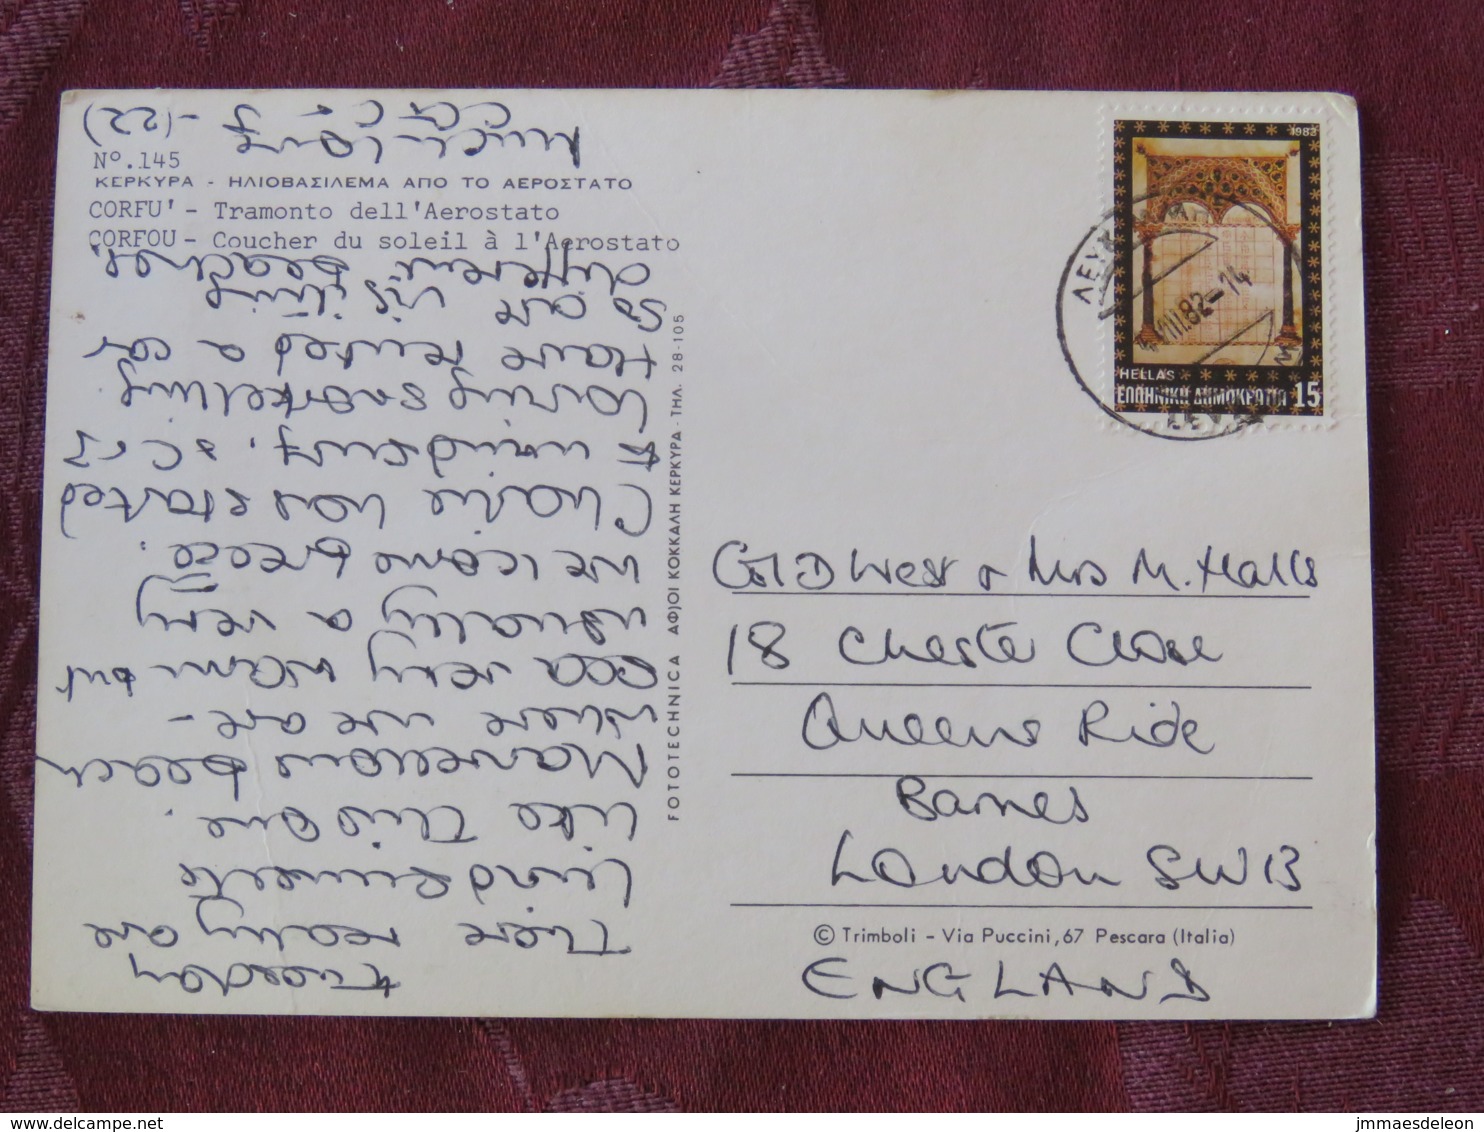 Nº.145
ΚΕΡΚΥΡΑ - ΗΛΙΟΒΑΣΙΛΕΜΑ ΑΠΟ ΤΟ ΑΕΡΟΣΤΑΤΟ
CORFU' - Tramonto dell'Aerostato
CORFOU - Coucher du soleil à l'Aerostato
Tuesday
There really are
wind
like this one.
beach
where we are -
very warm but
usually a very
welcome breeze.
Charlie has started
windsurf.
Donny snorkelling
have rented a car
so are visiting
different beaches.
FOTOTECHNICA ΑΦ)ΟΙ ΚΟΚΚΑΛΗ ΚΕΡΚΥΡΑ - ΤΗΛ. 28-105
1982
HELLAS
ΕΛΛΗΝΙΚΗ ΔΗΜΟΚΡΑΤΙΑ 15
VIII.82-14
Col D West + Mrs M. Halls
18 Chester Close
Queens Ride
Barnes
London SW13
© Trimboli - Via Puccini, 67 Pescara (Italia)
ENGLAND
jmmaesdeleon
www.delcampe.net